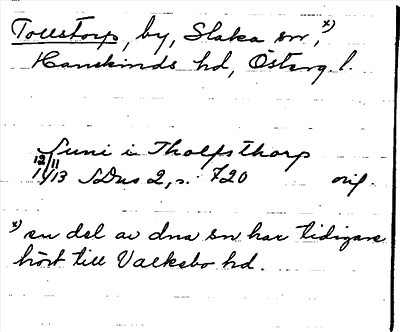 Tollstorp, by, Slaka sn, x)
Hanekinds hd, Österg. l.
Suni i Tholfsthorp
12/11
1413 SDns 2, s. 720 orig.
x) en del av dna sn har tidigare
hört till Valkebo hd.